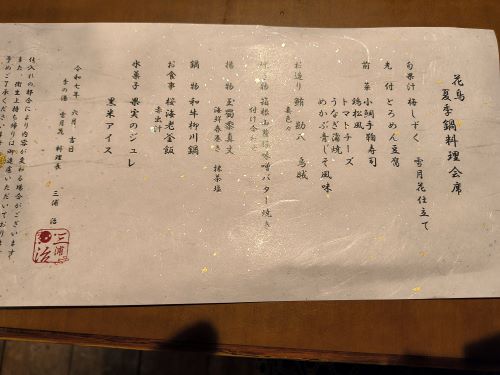 花鳥
夏季鍋料理会席
旬果汁 梅しずく 雪月花仕立て
先付 とろめん豆腐
前菜 小鯛手鞠寿司
鶏松風
トマトチーズ
うなぎ蒲焼
めかぶ青じそ風味
お造り 鮪 勘八 烏賊
妻色々
焼き物 箱根山麓豚味噌バター焼き
付け合わせ
揚物 玉蜀黍真丈
海鮮春巻き 抹茶塩
鍋物 和牛柳川鍋
お食事 桜海老釜飯
赤出汁
水菓子 果実のジュレ
黒米アイス
令和七年 六月 吉日
季の湯 雪月花 料理長 三浦 治
仕入れの都合により内容が変わる場合がございます
また、衛生上持ち帰りは御遠慮いただいております
予めご了承ください
三浦
治